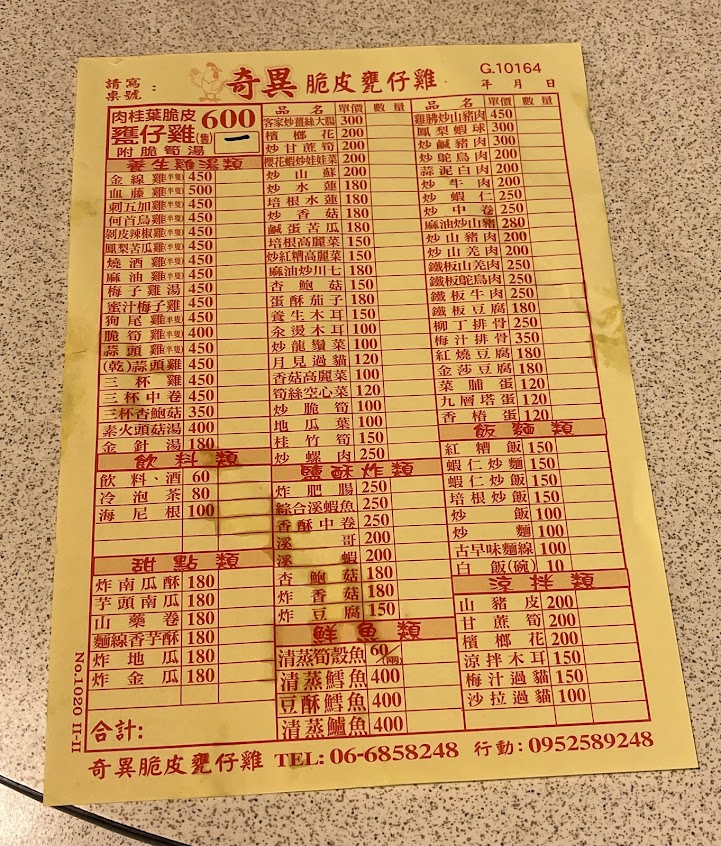 請寫桌號：
奇異脆皮甕仔雞
G.10164
年 月 日
肉桂葉脆皮
甕仔雞(隻) 600 一
附脆筍湯
養生雞湯類
金線雞(半隻) 450
血藤雞(半隻) 500
刺五加雞(半隻) 450
何首烏雞(半隻) 450
剝皮辣椒雞(半隻) 450
鳳梨苦瓜雞(半隻) 450
燒酒雞(半隻) 450
麻油雞(半隻) 450
梅子雞湯 450
蜜汁梅子雞 450
狗尾雞(半隻) 450
脆筍雞(半隻) 400
蒜頭雞(半隻) 450
(乾)蒜頭雞 450
三杯雞 450
三杯中卷 450
三杯杏鮑菇 350
素火頭菇湯 400
金針湯 180
飲料類
飲料、酒 60
冷泡茶 80
海尼根 100
甜點類
炸南瓜酥 180
芋頭南瓜 180
山藥卷 180
麵線香芋酥 180
炸地瓜 180
炸金瓜 180
合計:
品名 單價 數量
客家炒薑絲大腸 300
檳榔花 200
炒甘蔗筍 200
櫻花蝦炒娃娃菜 200
炒山蘇 200
炒水蓮 180
培根水蓮 180
炒香菇 180
鹹蛋苦瓜 180
培根高麗菜 150
炒紅糟高麗菜 150
麻油炒川七 180
杏鮑菇 150
蛋酥茄子 180
養生木耳 150
汆燙木耳 100
炒龍鬚菜 100
月見過貓 120
香菇高麗菜 100
筍絲空心菜 120
炒脆筍 100
地瓜葉 100
桂竹筍 150
炒螺肉 250
鹽酥炸類
炸肥腸 250
綜合溪蝦魚 250
香酥中卷 250
溪哥 200
溪蝦 200
杏鮑菇 180
炸香菇 180
炸豆腐 150
鮮魚類
清蒸筍殼魚 60/兩
清蒸鱈魚 400
豆酥鱈魚 400
清蒸鱸魚 400
品名 單價 數量
雞腸炒山豬肉 450
鳳梨蝦球 300
炒鹹豬肉 300
炒鴕鳥肉 200
蒜泥白肉 200
炒牛肉 200
炒蝦仁 250
炒中卷 250
麻油炒山豬 280
炒山豬肉 200
炒山羌肉 200
鐵板山羌肉 250
鐵板鴕鳥肉 250
鐵板牛肉 250
鐵板豆腐 180
柳丁排骨 250
梅汁排骨 350
紅燒豆腐 180
金莎豆腐 180
菜脯蛋 120
九層塔蛋 120
香椿蛋 120
飯麵類
紅糟飯 150
蝦仁炒麵 150
蝦仁炒飯 150
培根炒飯 150
炒飯 100
炒麵 100
古早味麵線 100
白飯(碗) 10
涼拌類
山豬皮 200
甘蔗筍 200
檳榔花 200
涼拌木耳 150
梅汁過貓 150
沙拉過貓 100
No.1020 II-II
奇異脆皮甕仔雞 TEL: 06-6858248 行動: 0952589248